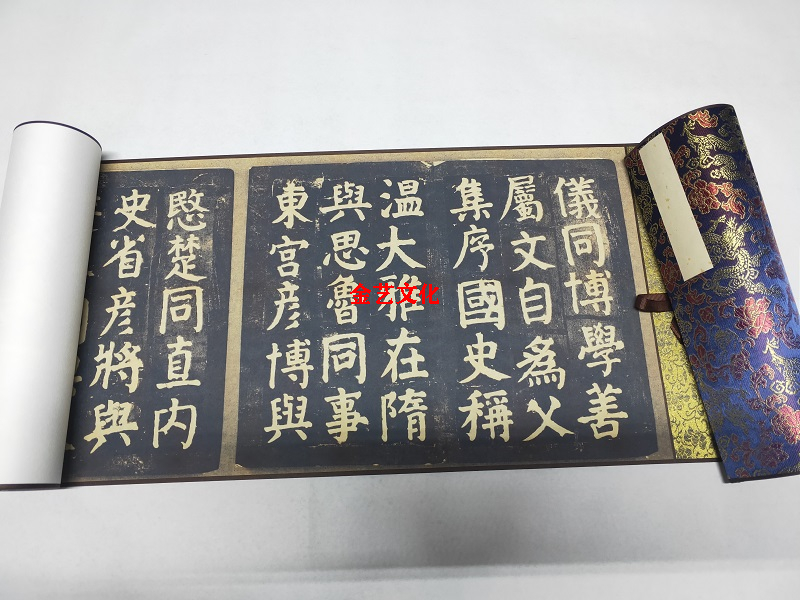 儀同博學善
屬文自爲父
集序國史稱
温大雅在隋
與思魯同事
東宫彦博與
愍楚同直内
史省彦將與
金艺文化